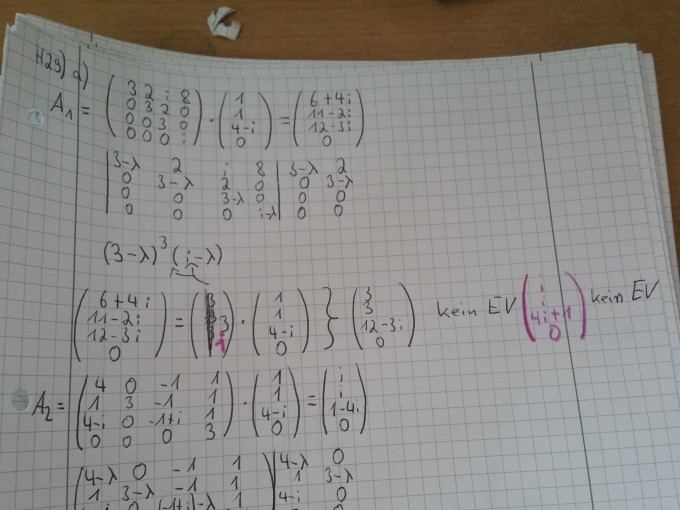 H29) a)
A₁ = ( 3 2 i 8 ; 0 3 2 0 ; 0 0 3 0 ; 0 0 0 i ) · ( 1 ; 1 ; 4-i ; 0 ) = ( 6+4i ; 11-2i ; 12-3i ; 0 )
| 3-λ 2 i 8 | 3-λ 2
| 0 3-λ 2 0 | 0 3-λ
| 0 0 3-λ 0 | 0 0
| 0 0 0 i-λ | 0 0
(3-λ)³ (i-λ)
( 6+4i ; 11-2i ; 12-3i ; 0 ) = ( 3 i ) · ( 1 ; 1 ; 4-i ; 0 ) } ( 3 ; 3 ; 12-3i ; 0 ) kein EV ( i ; i ; 4i+1 ; 0 ) kein EV
A₂ = ( 4 0 -1 1 ; 1 3 -1 1 ; 4-i 0 -1+i 1 ; 0 0 0 3 ) · ( 1 ; 1 ; 4-i ; 0 ) = ( i ; i ; 1-4i ; 0 )
( 4-λ 0 -1 1 | 4-λ 0
1 3-λ -1 1 | 1 3-λ
0 (-1+i)-λ 1 | 4-i 0